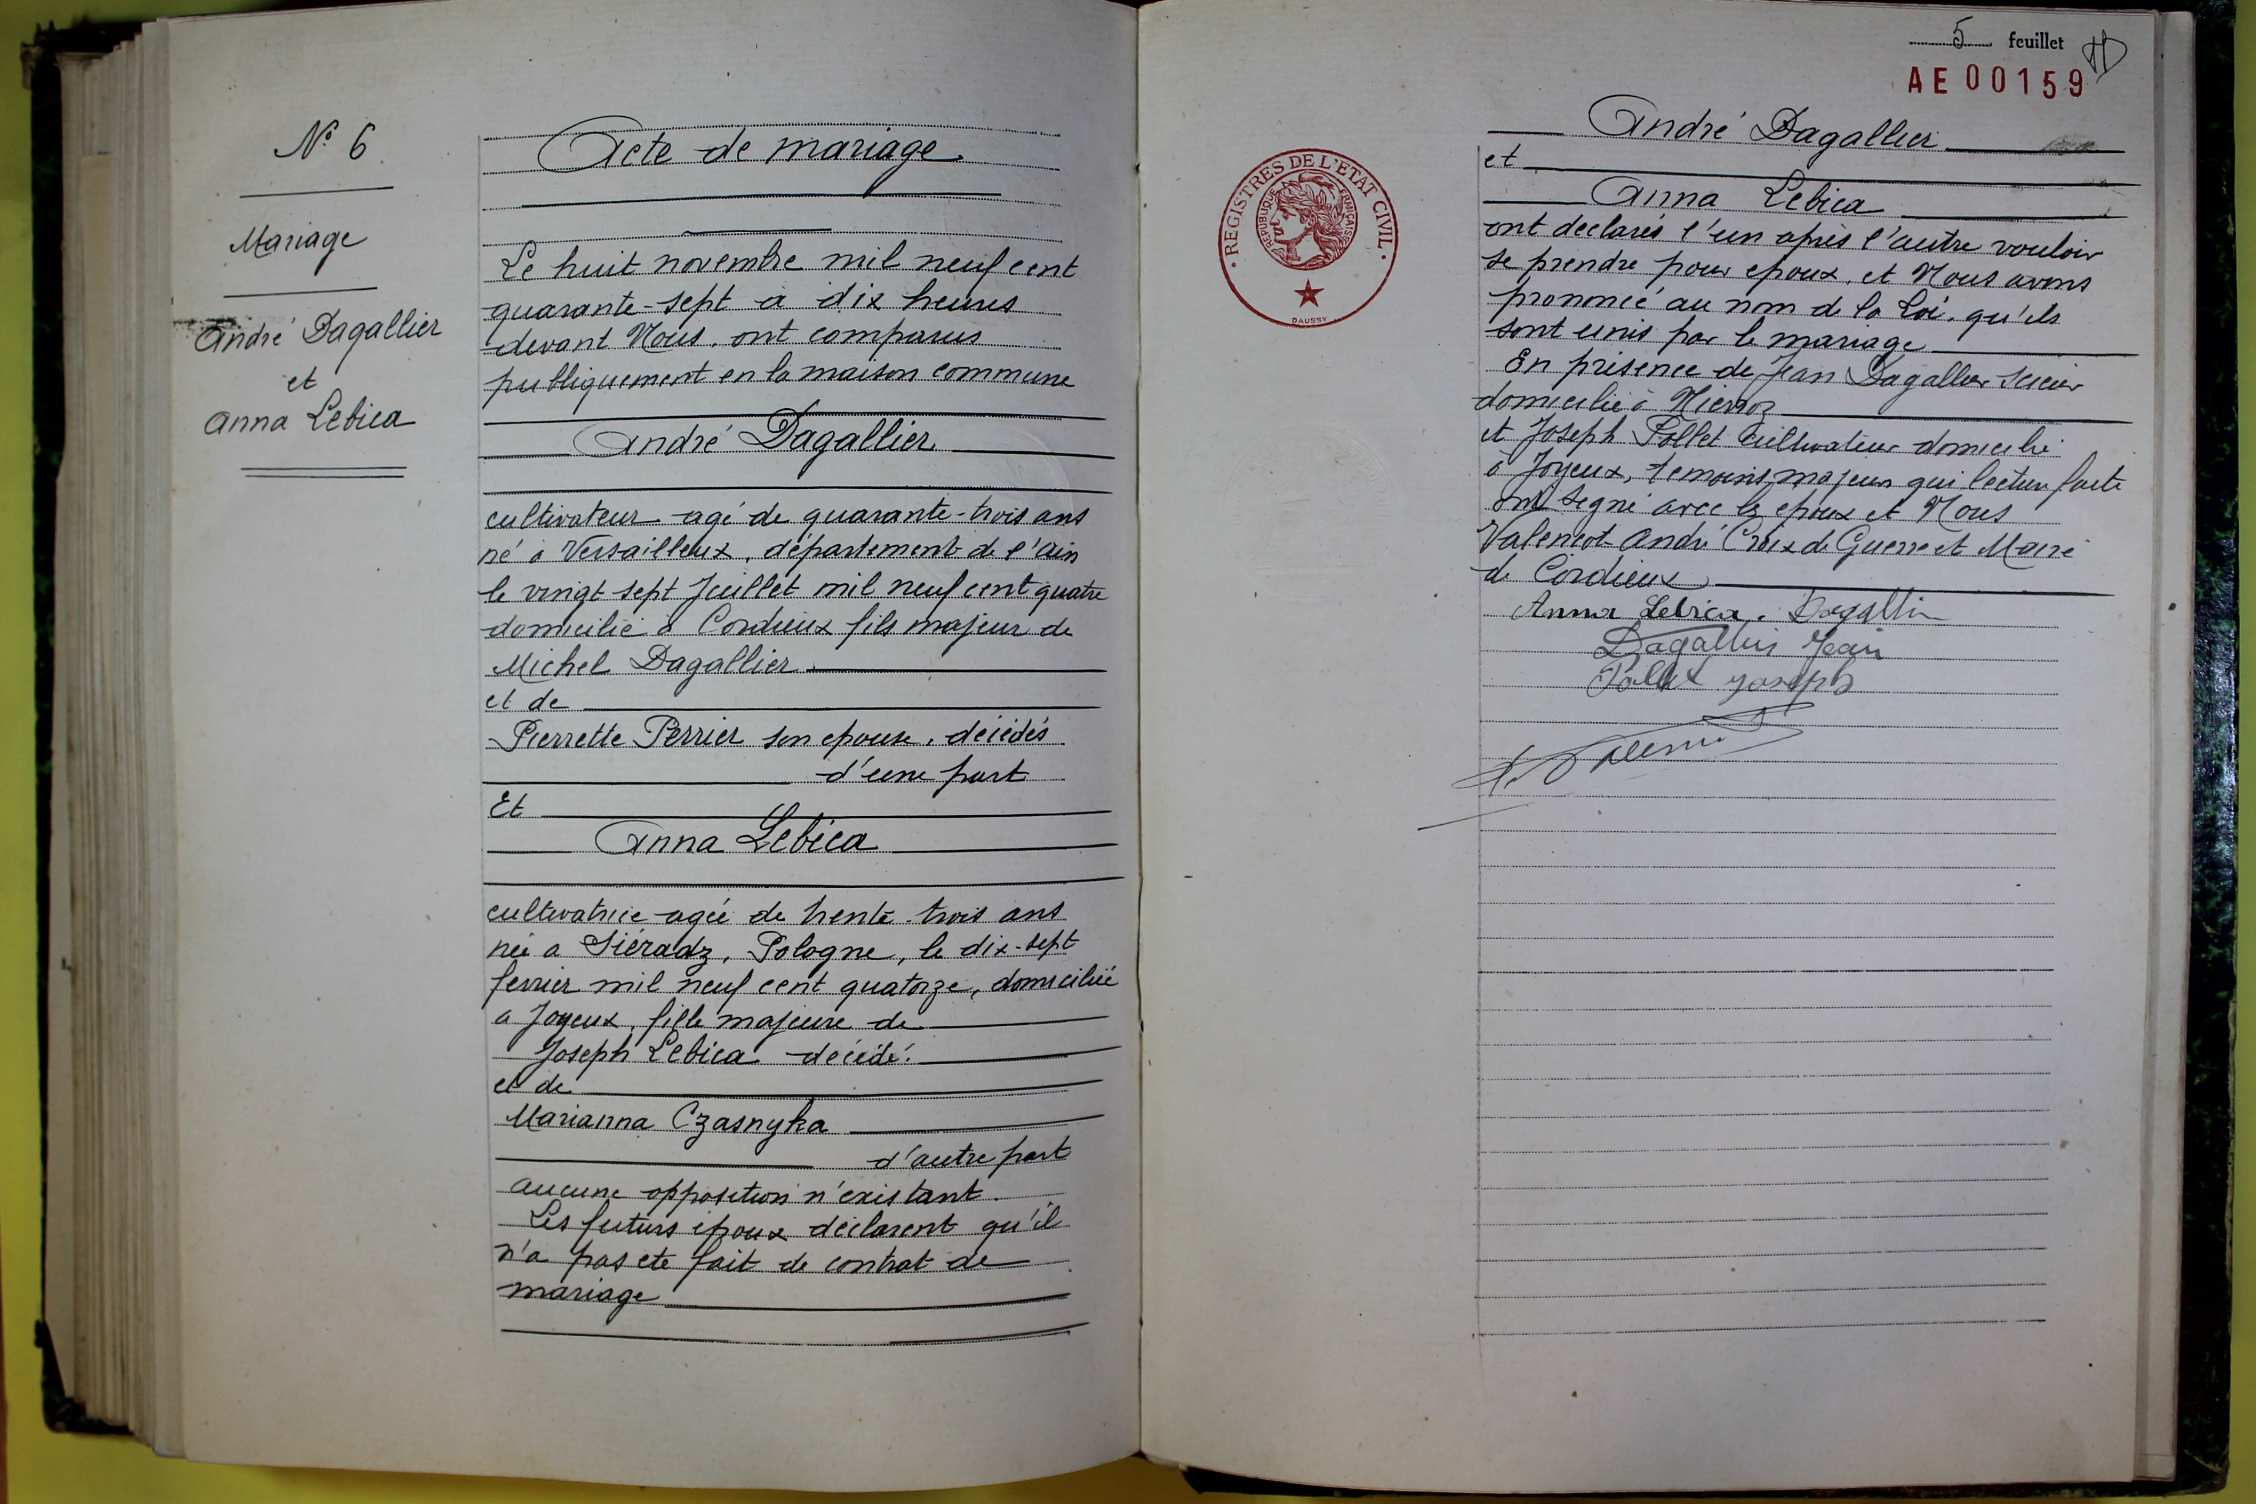 N° 6
Mariage
André Dagallier
et
Anna Lebica
Acte de mariage
Le huit novembre mil neuf cent
quarante-sept a dix heures
devant Nous, ont comparus
publiquement en la maison commune
André Dagallier
cultivateur agé de quarante-trois ans
né à Versailleux, département de l'Ain
le vingt sept Juillet mil neuf cent quatre
domicilié à Cordieux fils majeur de
Michel Dagallier
et de
Pierrette Perrier son epouse, décédés
d'une part
Et
Anna Lebica
cultivatrice agée de trente-trois ans
née a Siéradz, Pologne, le dix-sept
fevrier mil neuf cent quatorze, domiciliée
a Joyeux, fille majeure de
Joseph Lebica décédé.
et de
Marianna Czasnyka
d'autre part
aucune opposition n'existant.
Les futurs époux déclarent qu'il
n'a pas ete fait de contrat de
mariage
5 feuillet
AE 00159
REGISTRES DE L'ETAT CIVIL
REPUBLIQUE FRANÇAISE
DAUSSY
André Dagallier
et
Anna Lebica
ont declarés l'un après l'autre vouloir
se prendre pour epoux, et Nous avons
prononcé au nom de la Loi, qu'ils
sont unis par le mariage
En présence de Jean Dagallier scieur
domicilié à Niévroz
et Joseph Pollet cultivateur domicilié
à Joyeux, témoins majeurs qui lecture faite
ont signé avec les epoux et Nous
Valencot André Croix de Guerre et Maire
de Cordieux
Anna Lebica. Dagallier
Dagallier Jean
Pollet Joseph